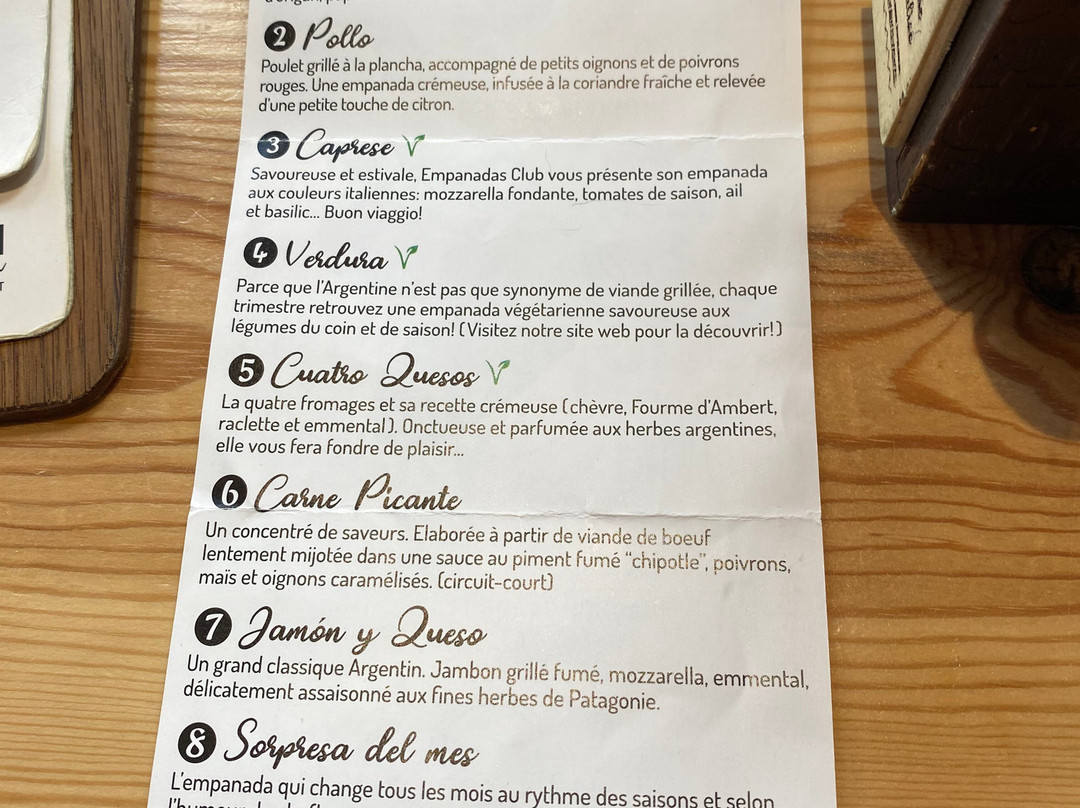 2 Pollo
Poulet grillé à la plancha, accompagné de petits oignons et de poivrons
rouges. Une empanada crémeuse, infusée à la coriandre fraîche et relevée
d'une petite touche de citron.
3 Caprese
Savoureuse et estivale, Empanadas Club vous présente son empanada
aux couleurs italiennes: mozzarella fondante, tomates de saison, ail
et basilic... Buon viaggio!
4 Verdura
Parce que l'Argentine n'est pas que synonyme de viande grillée, chaque
trimestre retrouvez une empanada végétarienne savoureuse aux
légumes du coin et de saison! (Visitez notre site web pour la découvrir!)
5 Cuatro Quesos
La quatre fromages et sa recette crémeuse (chèvre, Fourme d'Ambert,
raclette et emmental). Onctueuse et parfumée aux herbes argentines,
elle vous fera fondre de plaisir...
6 Carne Picante
Un concentré de saveurs. Elaborée à partir de viande de boeuf
lentement mijotée dans une sauce au piment fumé “chipotle”, poivrons,
maïs et oignons caramélisés. (circuit-court)
7 Jamón y Queso
Un grand classique Argentin. Jambon grillé fumé, mozzarella, emmental,
délicatement assaisonné aux fines herbes de Patagonie.
8 Sorpresa del mes
L'empanada qui change tous les mois au rythme des saisons et selon